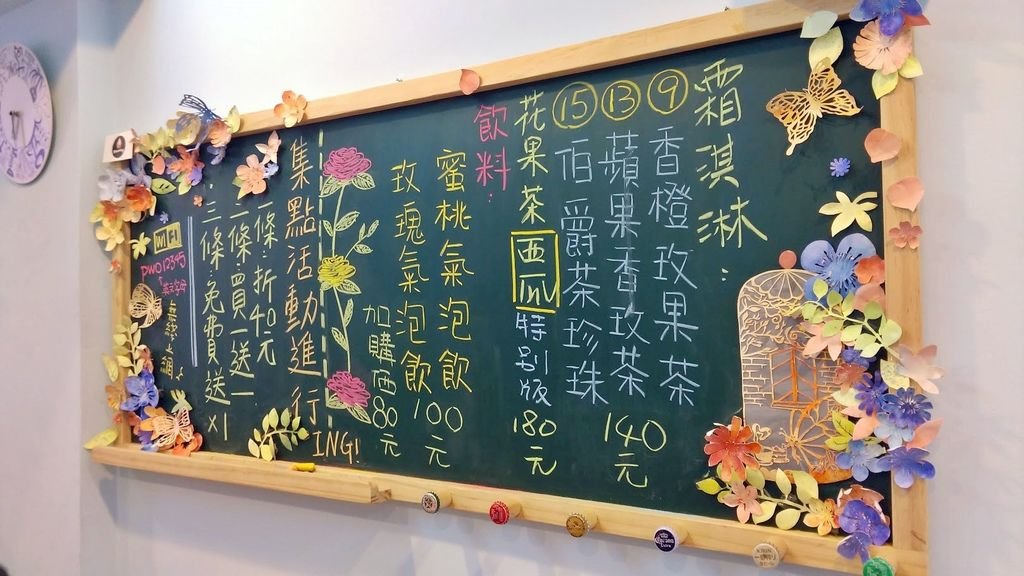 霜淇淋：
⑨香橙玫果茶
⑬蘋果香玫茶
140元
⑮伯爵茶珍珠
花果茶西瓜特別版180元
飲料：
蜜桃氣泡飲100元
玫瑰氣泡飲
加購価80元
集點活動進行ING!
一條·折40元
二條買一送一
三條·免費送×1
WIFI
PWD12345